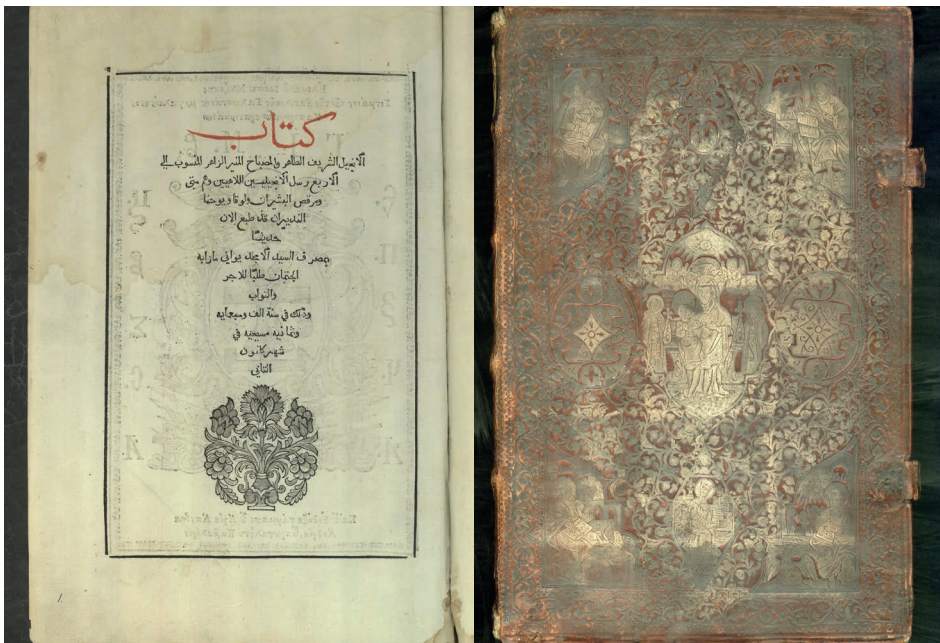 كتاب
الانجيل الشريف الطاهر والمصباح المنير الزاهر المنسوب الي
الاربع رسل الانجيليين اللاهيين وهم متي
ومرقص البشيران ولوقا ويوحنا
النديران قد طبع الان
حديثا
بمصرف السيد الامجد يواني مازابه
اجتمان طلبا للاجر
والثواب
وذلك في سنة الف وسبعمايه
وثمانيه مسيحيه في
شهر كانون
الثاني